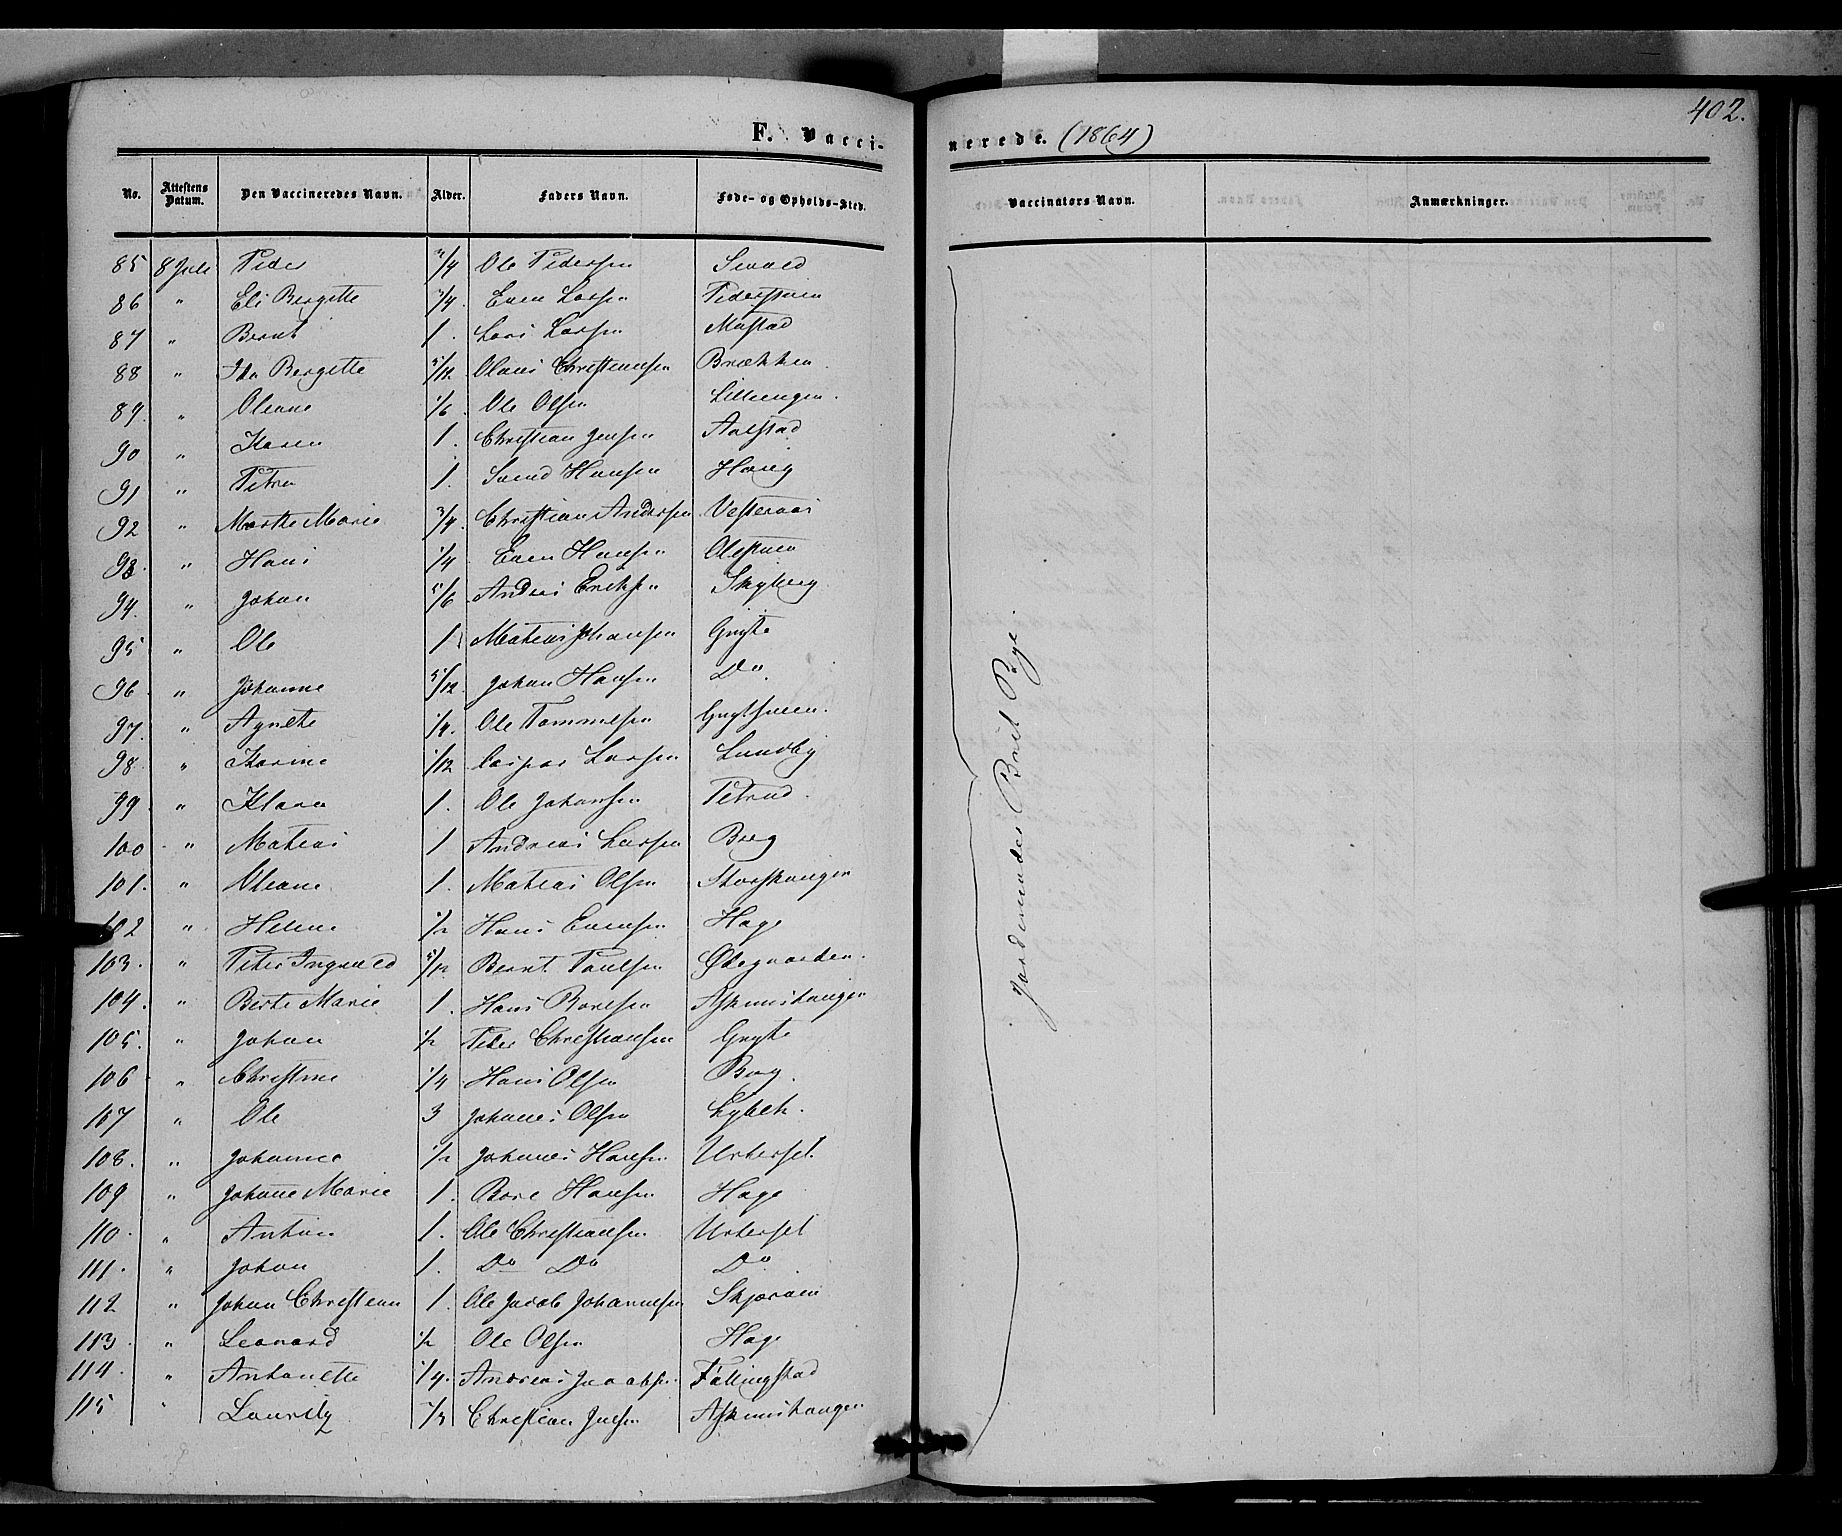 402.
F. Vacci- nerede. (1864)
No. Attestens Datum. Den Vaccineredes Navn. Alder. Faders Navn. Føde- og Opholds-Sted. Vaccinators Navn. Anmærkninger.
85 8 Juli Peder 3/4 Ole Pedersen
86 " Eli Bergitte 3/4. Even Larsen Pederstuen
87 " Bernt 1. Lars Larsen Mustad
88 " Ida Bergitte 5/12 Olaus Christiansen Brækken
89. " Oleane 1/6 Ole Olsen Lilleengen.
90 " Karen 1. Christian Jensen Aalstad
91 " Petra 1. Svend Hansen Haug
92 " Marthe Marie 3/4. Christian Andersen Vesteraas
93. " Hans 1/4 Even Hansen Olestuen
94. " Johan 5/6 Andreas Eriksen Skyberg
95 " Ole 1 Mathias Johansen Gryte
96 " Johanne 5/12. Johan Hansen Do
97. " Agnethe 1/4. Ole Tommesen Grythuen.
98. " Karine 1/12 Caspar Larsen Lundby
99. " Klara 1. Ole Johansen Petrud.
100 " Mathias 1 Andreas Larsen Berg
101. " Oleane 1. Mathias Olsen Storhaugen
102 " Helene 1/2 Hans Evensen Hage
103. " Peter Ingvald 5/12 Bernt Paulsen Ødegaarden.
104. " Berte Marie 1. Hans Borresen Askimshaugen
105. " Johan 1/2 Peder Christiansen Gryte
106 " Christine 1/4 Hans Olsen Berg.
107 " Ole 3 Johannes Olsen Lybek.
108. " Johannes 1/2 Johannes Hansen Urterset.
109 " Johanne Marie 1. Bore Hansen Hage
110. " Anton 1. Ole Christiansen Urterset
111. " Johan 1. Do Do Do
112 " Johan Christian 1. Ole Jacob Johannesen
113 " Leonard 1/2 Ole Olsen Hage
114. " Antonette 1/4. Andreas Jacobsen Fallingstad
115 " Lauritz 1/3 Christian Julsen Askimshaugen
Jordemoder Brit Pagi.